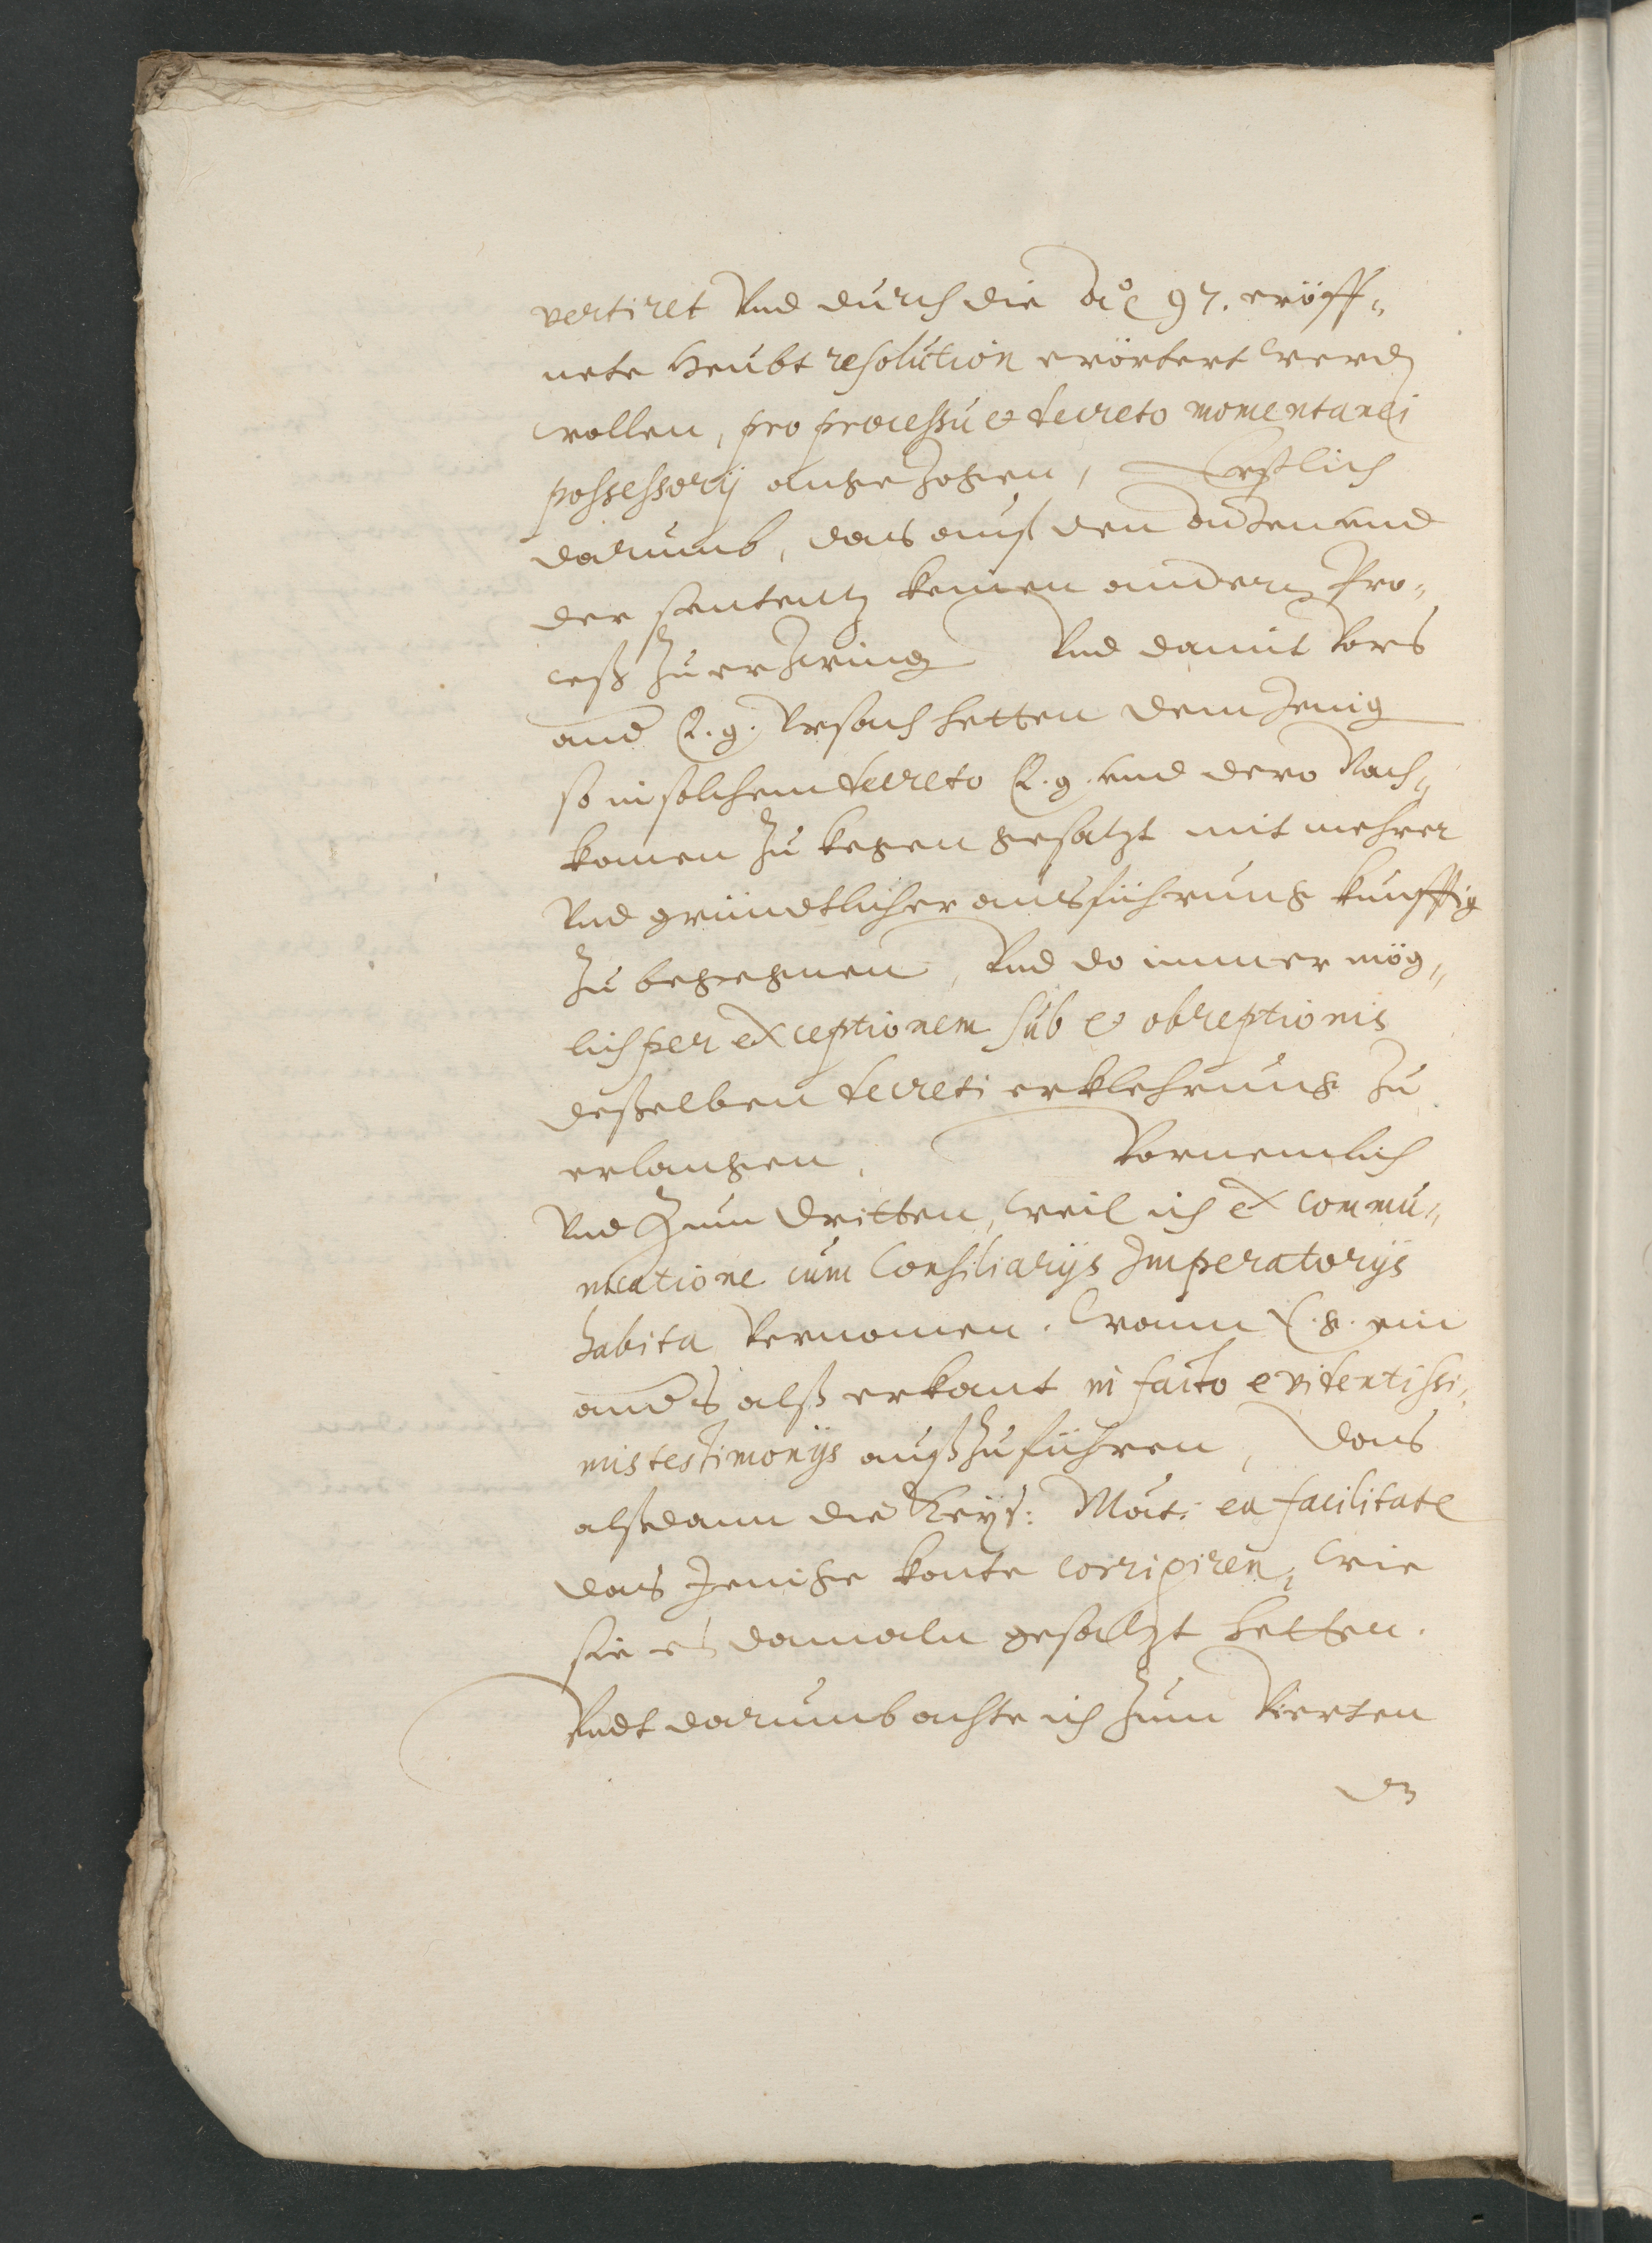 vertiret Vnd durch die Aō 97. eröff¬
nete Heubt resolution erörtert werdẽ
wollen, pro processu et decreto momentanei
possessorij angezogen, Erstlich
darumb, das auß den Acten vnd
der sententz keinen andern Pro¬
ceß zu erzwing Vnd damit Vors
and E. g. Vrsach hetten demJenig
so in solchem decreto E. g. vnd dero Nach¬
komen zu kegen gesatzt mit mehrer
Vnd gründtlicher ausführung künfftig
zu begegenen, Vnd do immer mög¬
lich per exceptionem sub et obreptionis
desselben decreti erklehrung zu
erlangen, Vornemlich
Vnd Zum dritten, weil ich ex commu¬
nicatione cum Consiliarijs Imperatorijs
habita Vernomen. Wann E. g. ein
anders alß erkant in facto evidentissi¬
mis testimonijs außzuführen, das
alßdann die Keys: Mat: ea facilitate
das Jenige konte corrigiren, wie
sie es damaln gesatzt hetten.
Vndt darumb achte ich zum Vierten